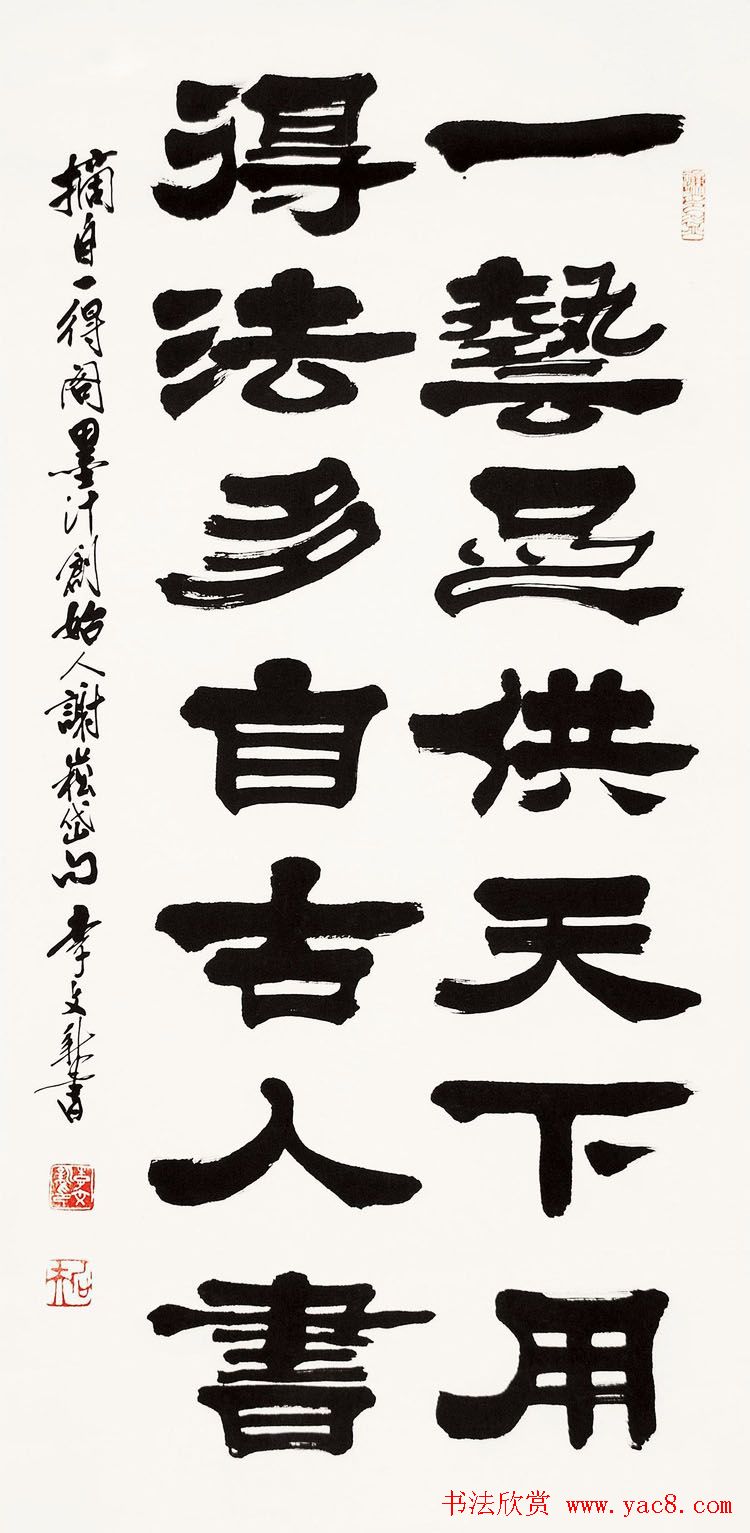 一藝足供天下用
得法多自古人書
摘自一得阁墨汁創始人謝崧岱句 李文新書
书法欣赏 www.yac8.com